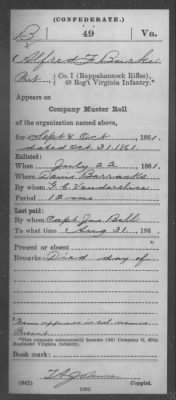 (CONFEDERATE.)
B 49 Va.
Alfred F. Burke
Pvt, Co. I (Rappahannock Rifles),
49 Reg't Virginia Infantry.*
Appears on
Company Muster Roll
of the organization named above,
for Sept & Oct, 1861.
dated Oct 31 1861
Enlisted:
When July 22, 1861.
Where Camp Barracks
By whom
Period 12 mos
Last paid:
By whom Capt Jas Bell
To what time Aug 31, 186
Present or absent
Remarks: Died day of
Name appears in col. names
Present
*This company subsequently became (2d) Company G, 49th
Regiment Virginia Infantry.
Book mark:
(642)
Copyist.